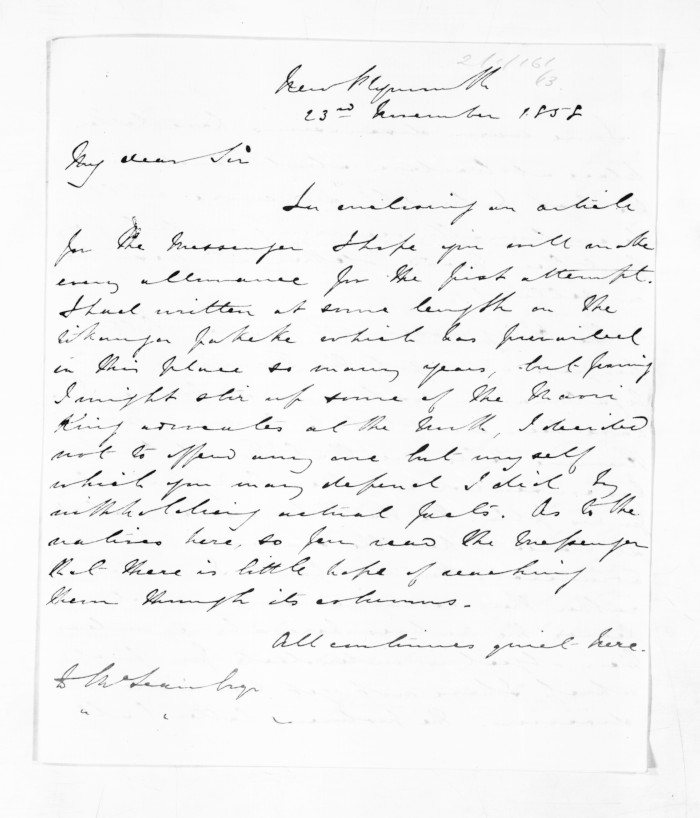 New Plymouth
23rd November 1858
My dear Sir
In enclosing an article
for the Messenger I hope you will make
every allowance for the first attempt.
I had written at some length on the
tikanga which has prevailed
in this place so many years, but fearing
I might stir up some of the Maori
King advocates at the north, I decided
not to offend any one but myself
which you may depend I did by
withholding actual facts. As to the
natives here, so few read the Messenger
that there is little hope of reaching
them through its columns.
All continues quiet here.
D McLean Esqr
" " "